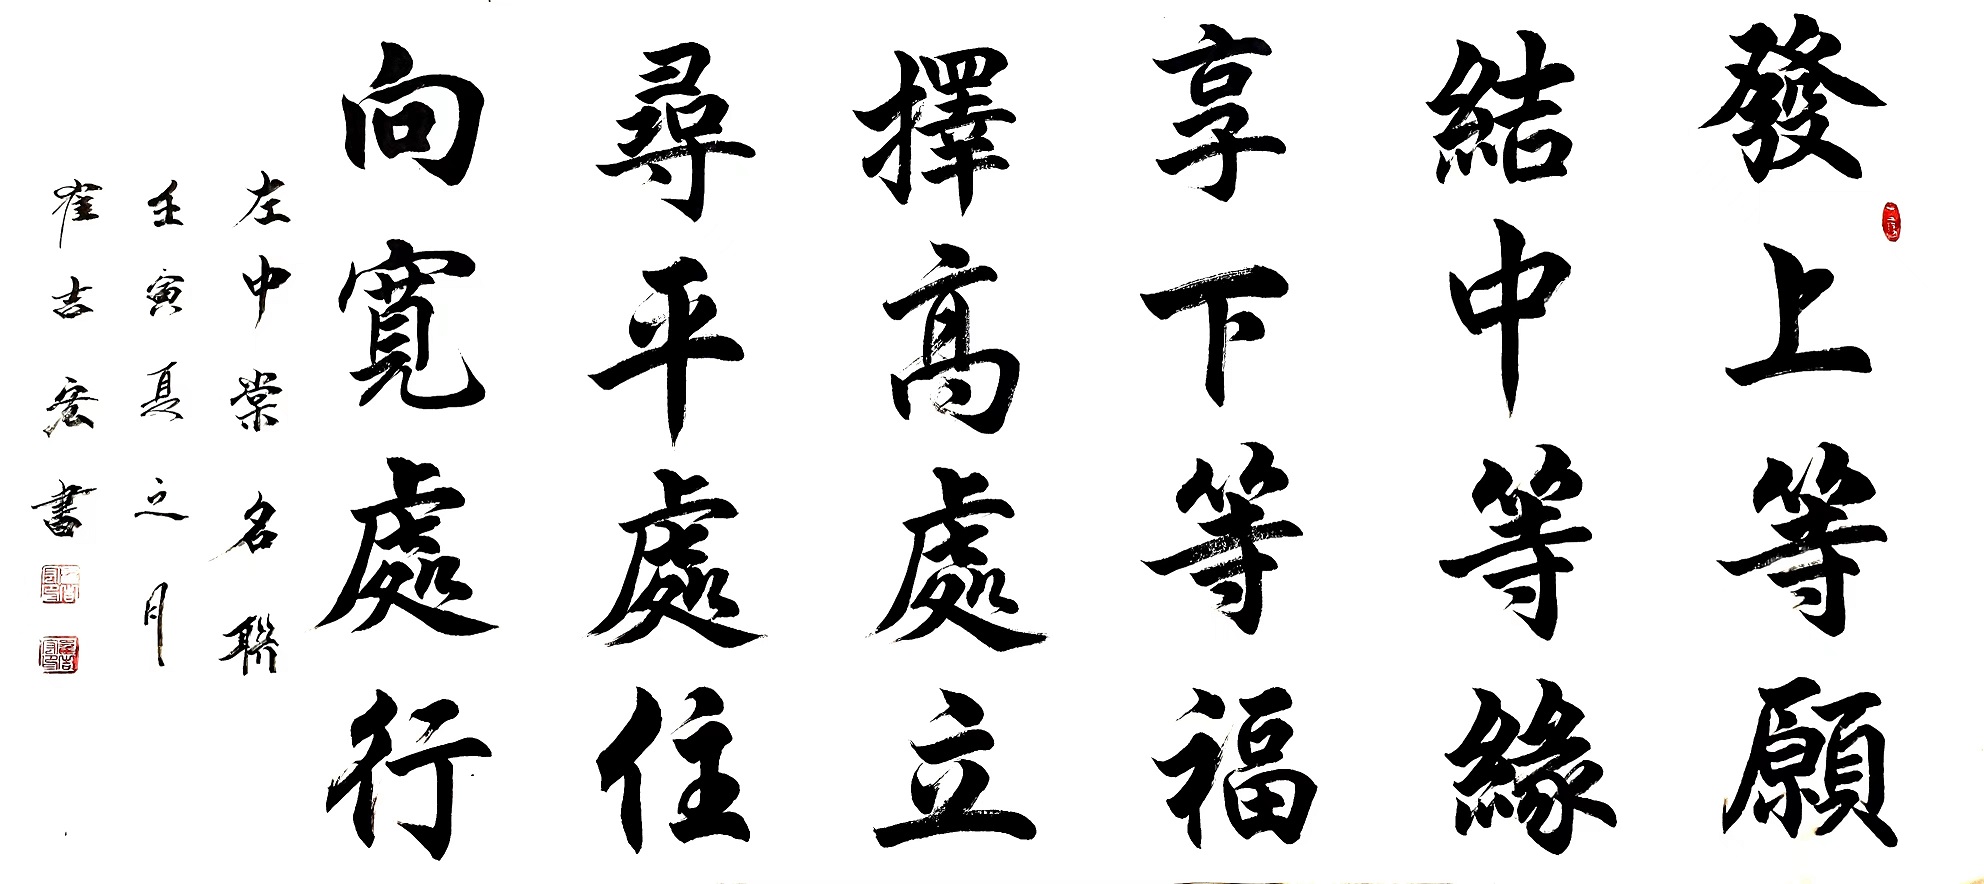 發上等願
結中等緣
享下等福
擇高處立
尋平處住
向寬處行
左中棠名聯
壬寅夏之月
崔吉宏書